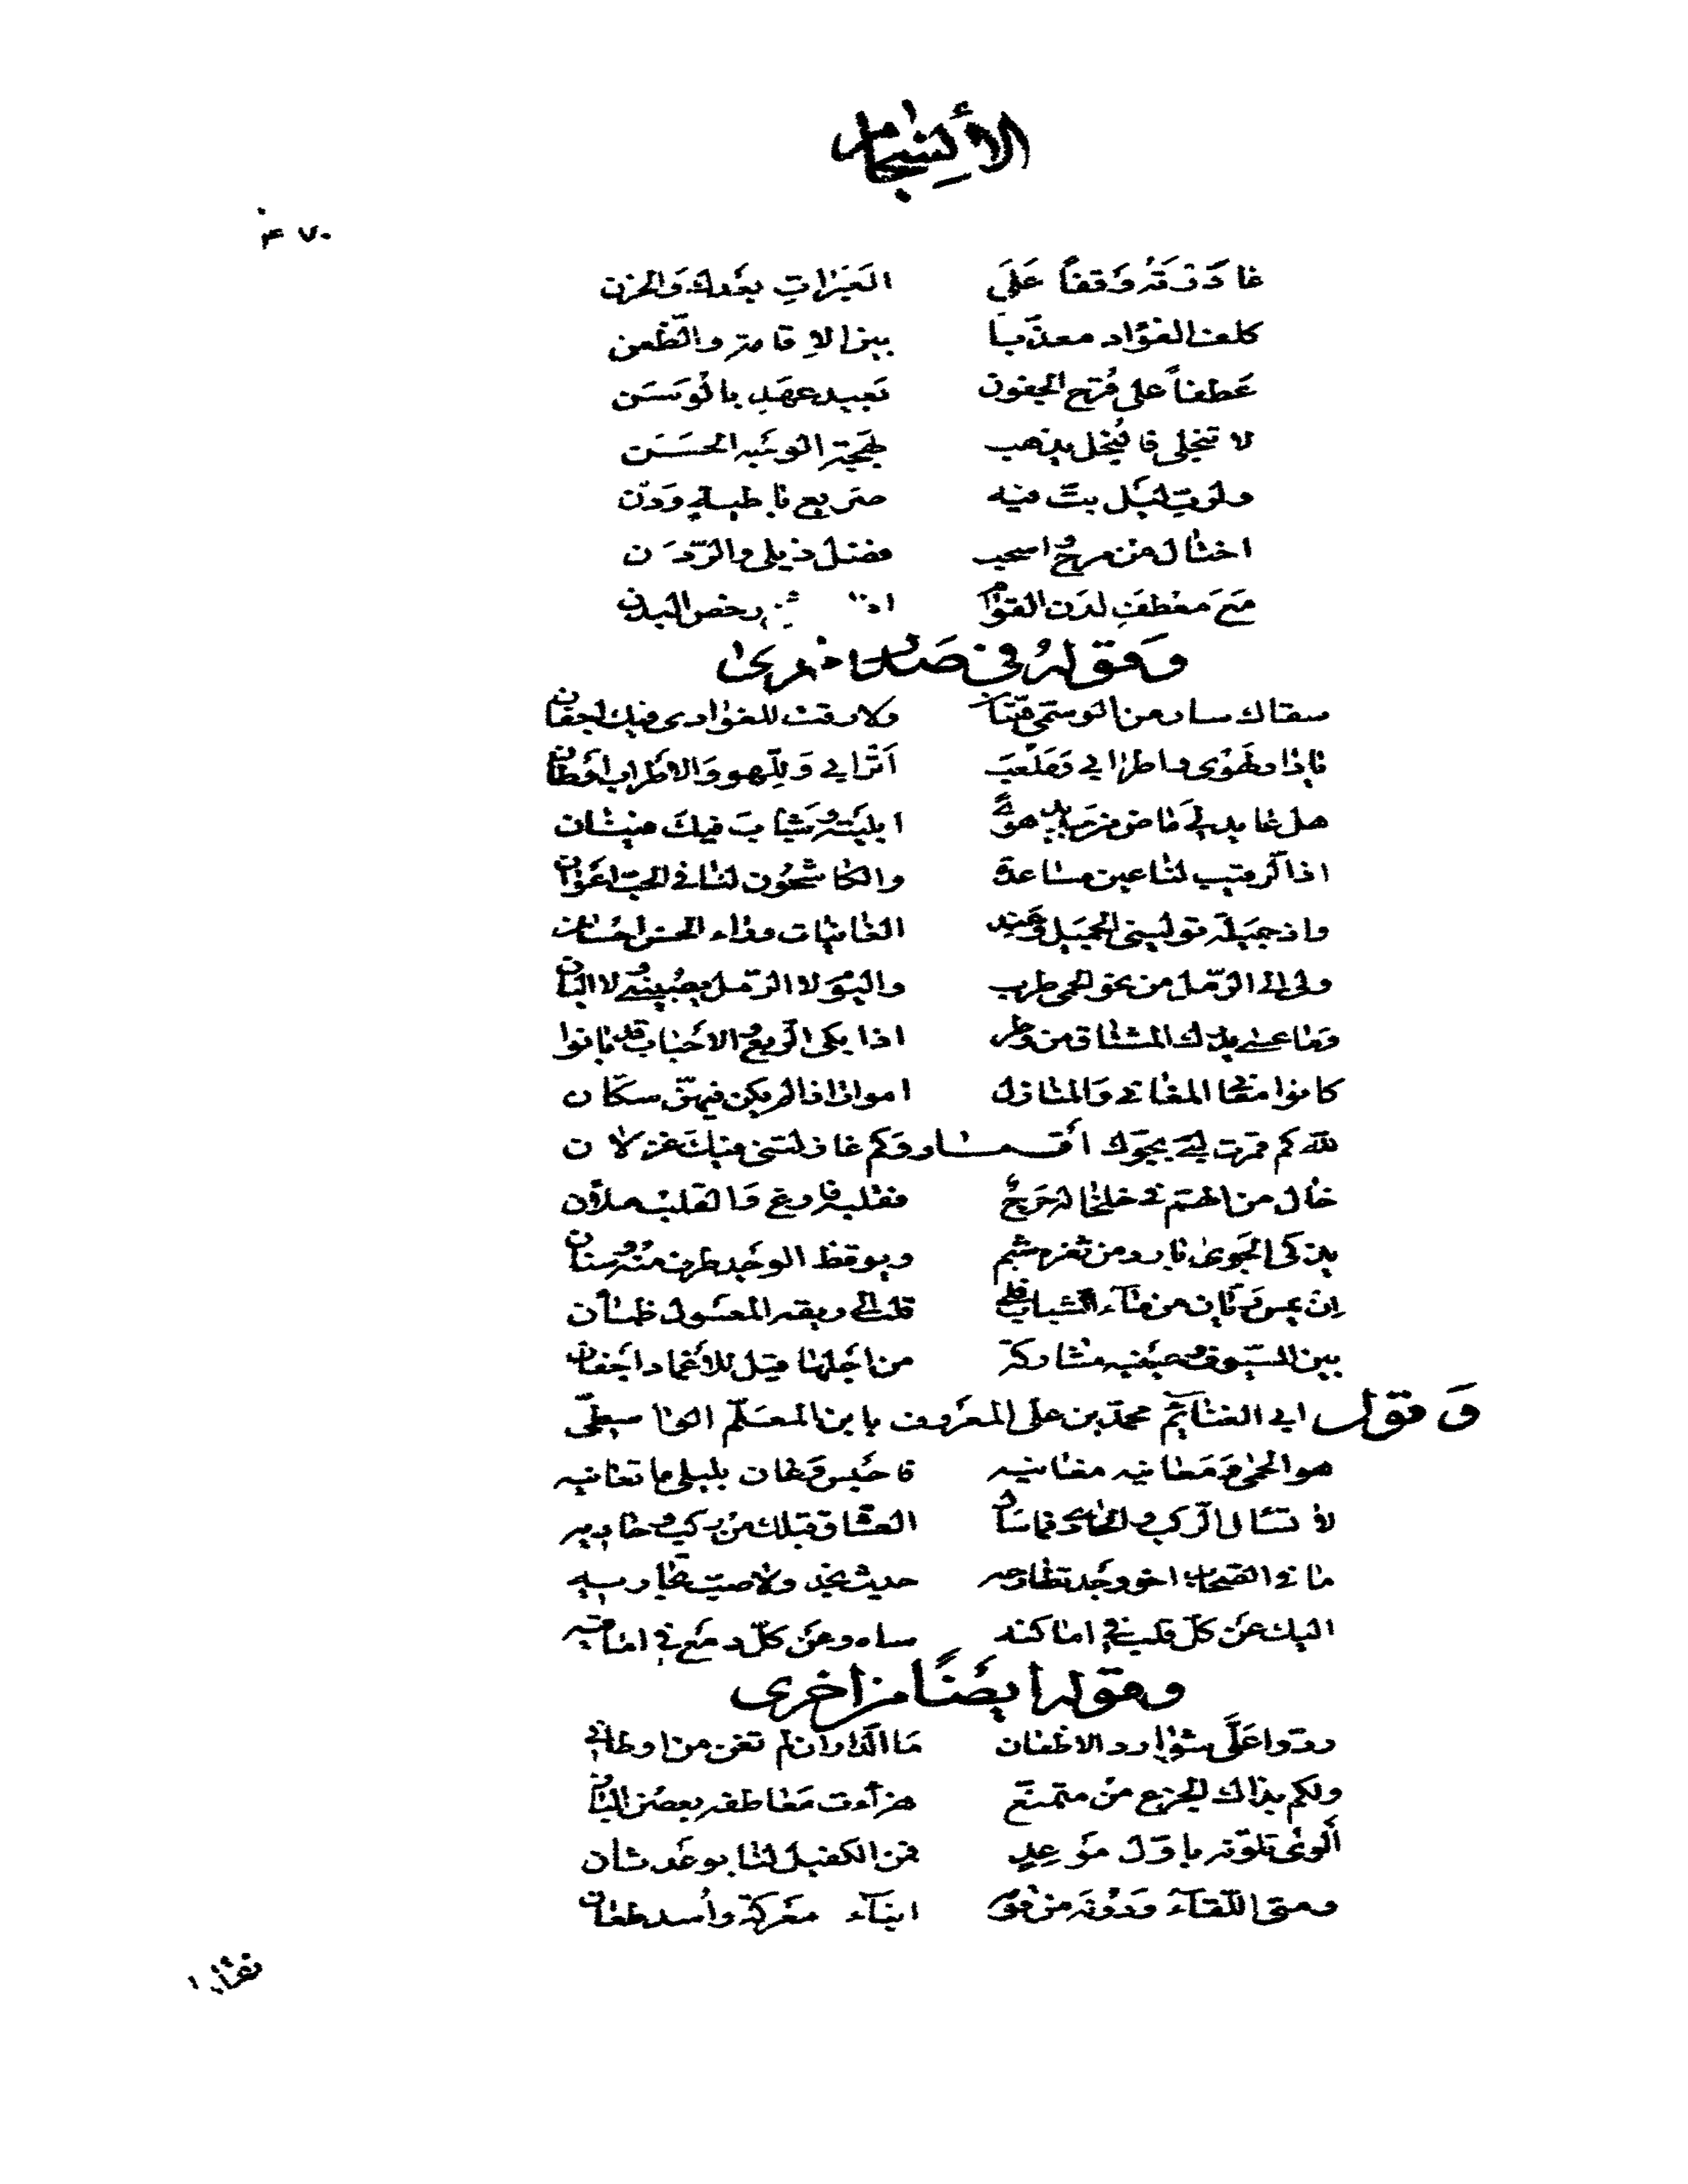 الأنسجام
٤٧٠
غادرته وقفًا على العبرات بعدك والحزن
كلف الفؤاد معذبا بين الاقامة والظعن
عطفاً على قرح الجفون بعيد عهد بالوسن
لا تبخلي فالبخل يذهب بهجة الوجه الحسن
ولرب ليل بت فيه صريع باطية ودن
اختال من مرح واسحب فضل ذيلي والردن
مع مخطف لدن القوام رخص البدن
وقوله في صدر اخرى
سقاك سار من الوسمي هتان ولا رقت للغوادي فيك اجفان
يا دار لهوي واطرابي وملعب أترابي وللهو والاطراب اوطان
هل عايد لي ماض من جديد هوى ابليته وشباب فيك فينان
اذ الرقيب لنا عين مساعدة والكاشحون لنا في الحب اعوان
واذ جميلة توليني الجميل وعند الغانيات وراء الحسن احسان
ولي الى الرمل من نحو الحمى طرب واليوم لا الرمل يصبيني ولا البان
وما عسى يدرك المشتاق من وطر اذا بكى الربع والاحباب قد بانوا
كانوا معاني المغاني والمنازل اموات اذا لم يكن فيهن سكان
لله كم قمرت لبي بجوك أقمار وكم غازلتني منك غزلان
خال من الهم في خلخاله حرج فقلبه فارغ والقلب ملآن
يذكي الجوى بارد من ثغره شبم ويوقظ الوجد طرف منه وسنان
إن يمس ريان من ماء الشباب فلي قلب الى ريقه المعسول ظمآن
بين السيوف وعينيه مشاركة من اجلها قيل للأغماد اجفان
وقول ابي الغنايم محمد بن علي المعروف بابن المعلم الواسطي
هو الحمى ومغانيه مغانيه فاحبس وعان بليلى ما تعانيه
لا تسأل الركب والحادي فما سأل العشاق قبلك من ركب وحاديه
ما في الصحاب اخو وجد تطارحه حديث نجد ولا صب تجاريه
اليك عن كل قلب في اماكنه ساه وعن كل دمع في اماقيه
وقوله ايضًا من اخرى
ردوا علي شوارد الاظعان ما الدار ان لم تغن من اوطاني
ولكم بذاك الجزع من متمنع هزأت معاطفه بغصن البان
ألوى تلونه باول موعد فمن الكفيل لنا بوعد ثان
ومتى اللقاء ودونه من قومه ابناء معركة وأسد طعان